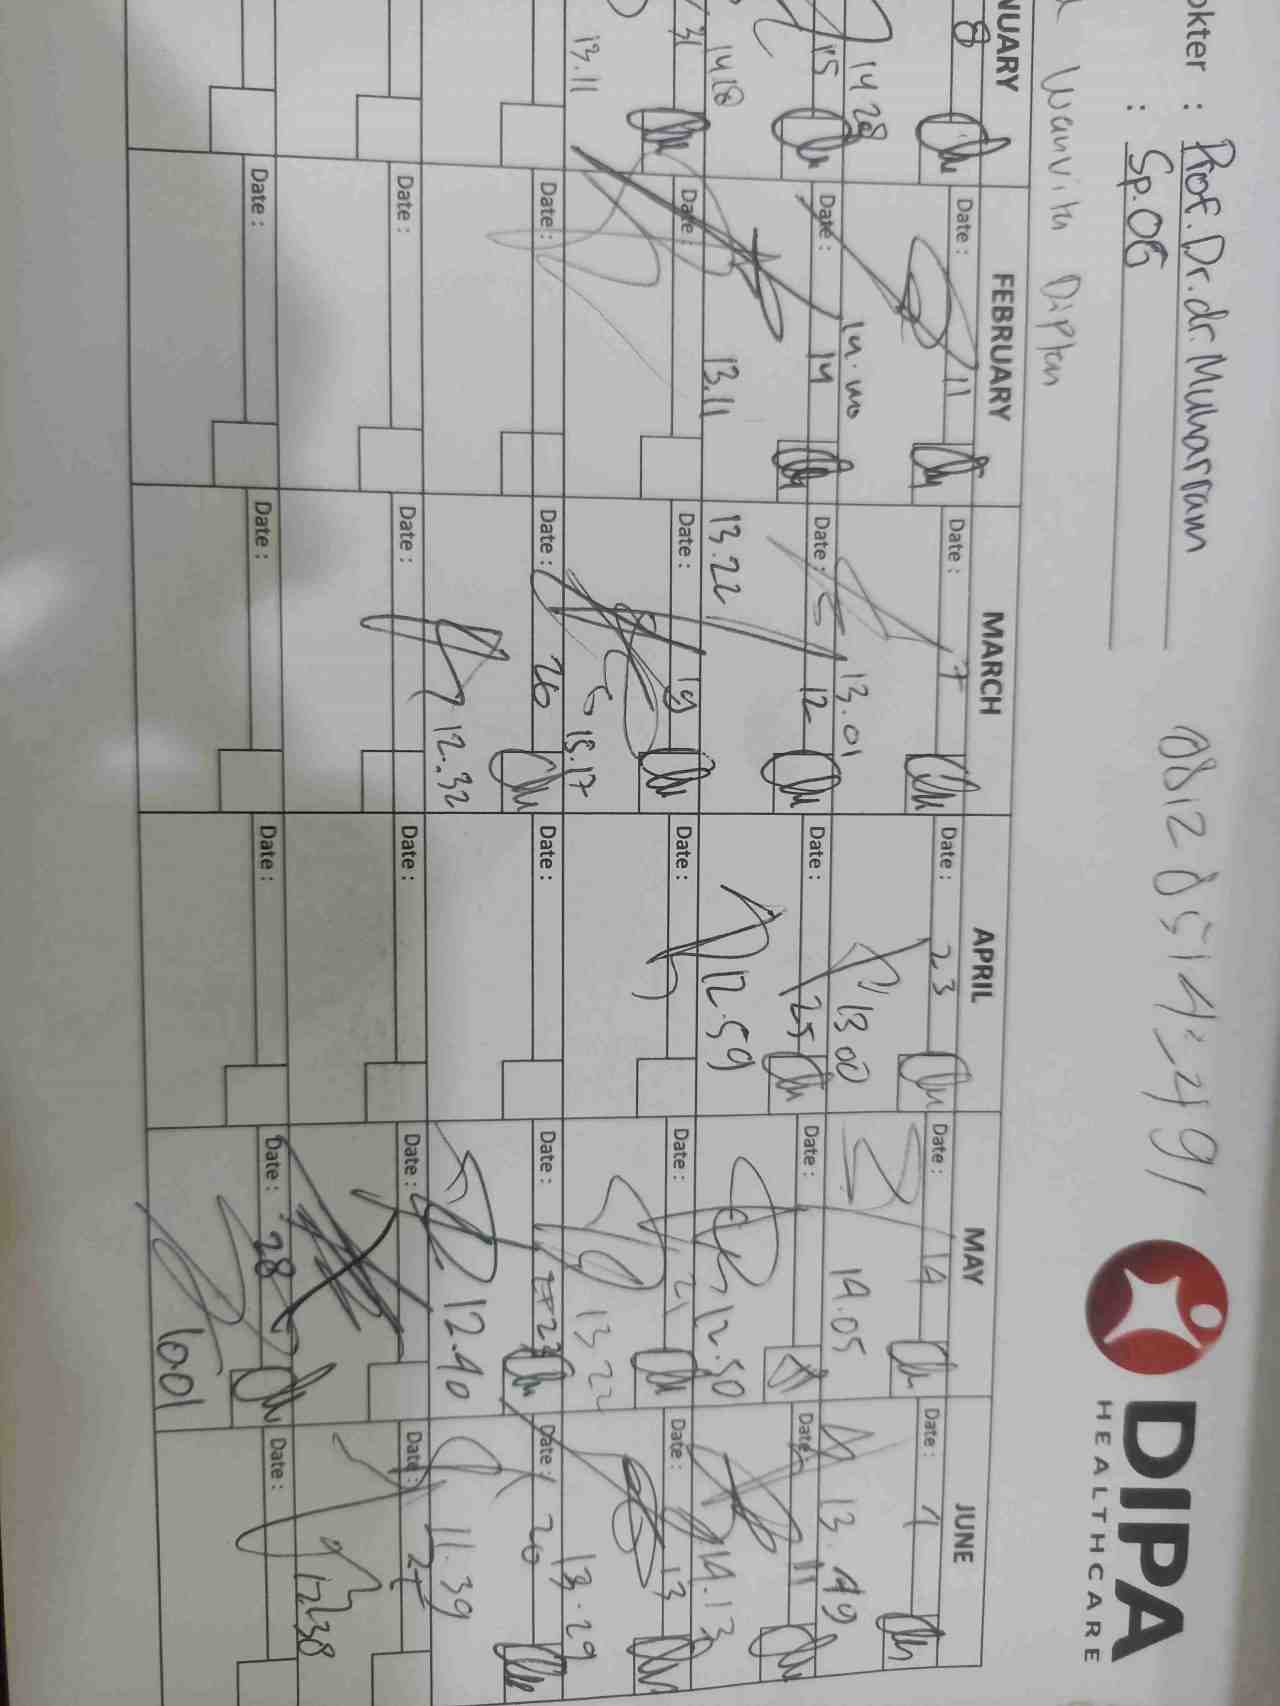 okter : Prof. Dr. dr. Muharram
: Sp.OG
0812805142491
DIPA
HEALTHCARE
Wanvita Diptan
NUARY
FEBRUARY
MARCH
APRIL
MAY
JUNE
8
Date : 11
Date : 7
Date : 23
Date : 14
Date : 4
14 28
13.01
13 00
14.05
13.49
15
Date : 14
Date : 12
Date : 25
Date :
Date : 11
14.18
13.11
13.22
12.59
12.50
14.13
31
Date :
Date : 19
Date :
Date : 21
Date : 13
13.11
15.17
13 22
13.29
Date :
Date : 26
Date :
Date : 23
Date : 20
12.32
12.40
11.39
Date :
Date :
Date :
Date :
Date : 27
12.38
Date :
Date :
Date :
Date : 28
Date :